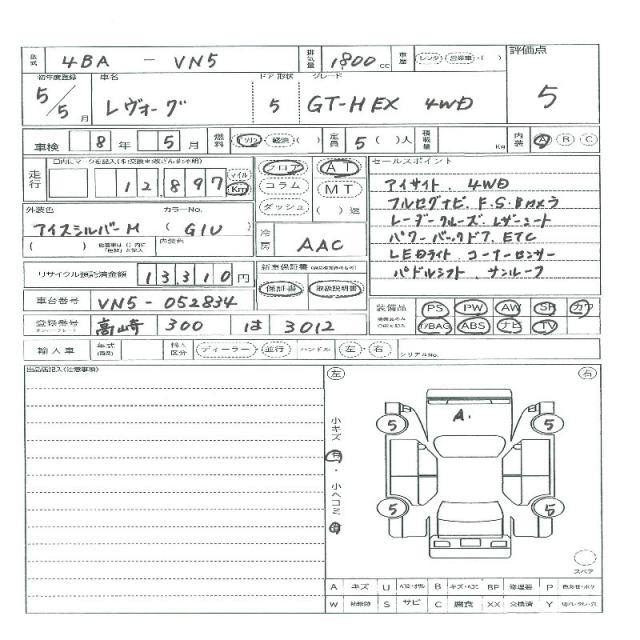 型式 4BA - VN5 排気量 1800 cc 車歴 レンタ・自家車・( ) 評価点
初年度登録 車名 ドア 形状 グレード
5/5月 レヴォーグ 5 GT-H EX 4WD 5
車検 8年 5月 燃料 ガソリン・軽油・( ) 定員 5 ( )人 積載量 Kg 内装 A B C
走行 12,897 マイル Km フロア コラム ダッシュ AT MT ( )速
セールスポイント
アイサイト. 4WD
フルセグナビ. F.S.Bカメラ
レーダークルーズ. レザーシート
パワーバックドア. ETC
LEDライト コーナーセンサー
パドルシフト サンルーフ
外装色 カラーNo.
アイスシルバーM (G1U)
( ) 内装色
冷房 AAC
リサイクル預託済金額 13,310円 新車保証書
保証書 取扱説明書
車台番号 VN5-052834
登録番号 高崎 300 は 3012
装備品 PS PW AW SR カワ
エアBAG ABS ナビ TV
輸入車 年式 輸入区分 ディーラー・並行 ハンドル 左・右 シリアルNo.
出品店記入(注意事項)
左 右
小キズ 有・小ヘコミ 有
A.
5 5
5 5
スペア
A キズ U B キズ・ヘコ BP 修理跡 P
W S サビ C 腐食 XX 交換済 Y